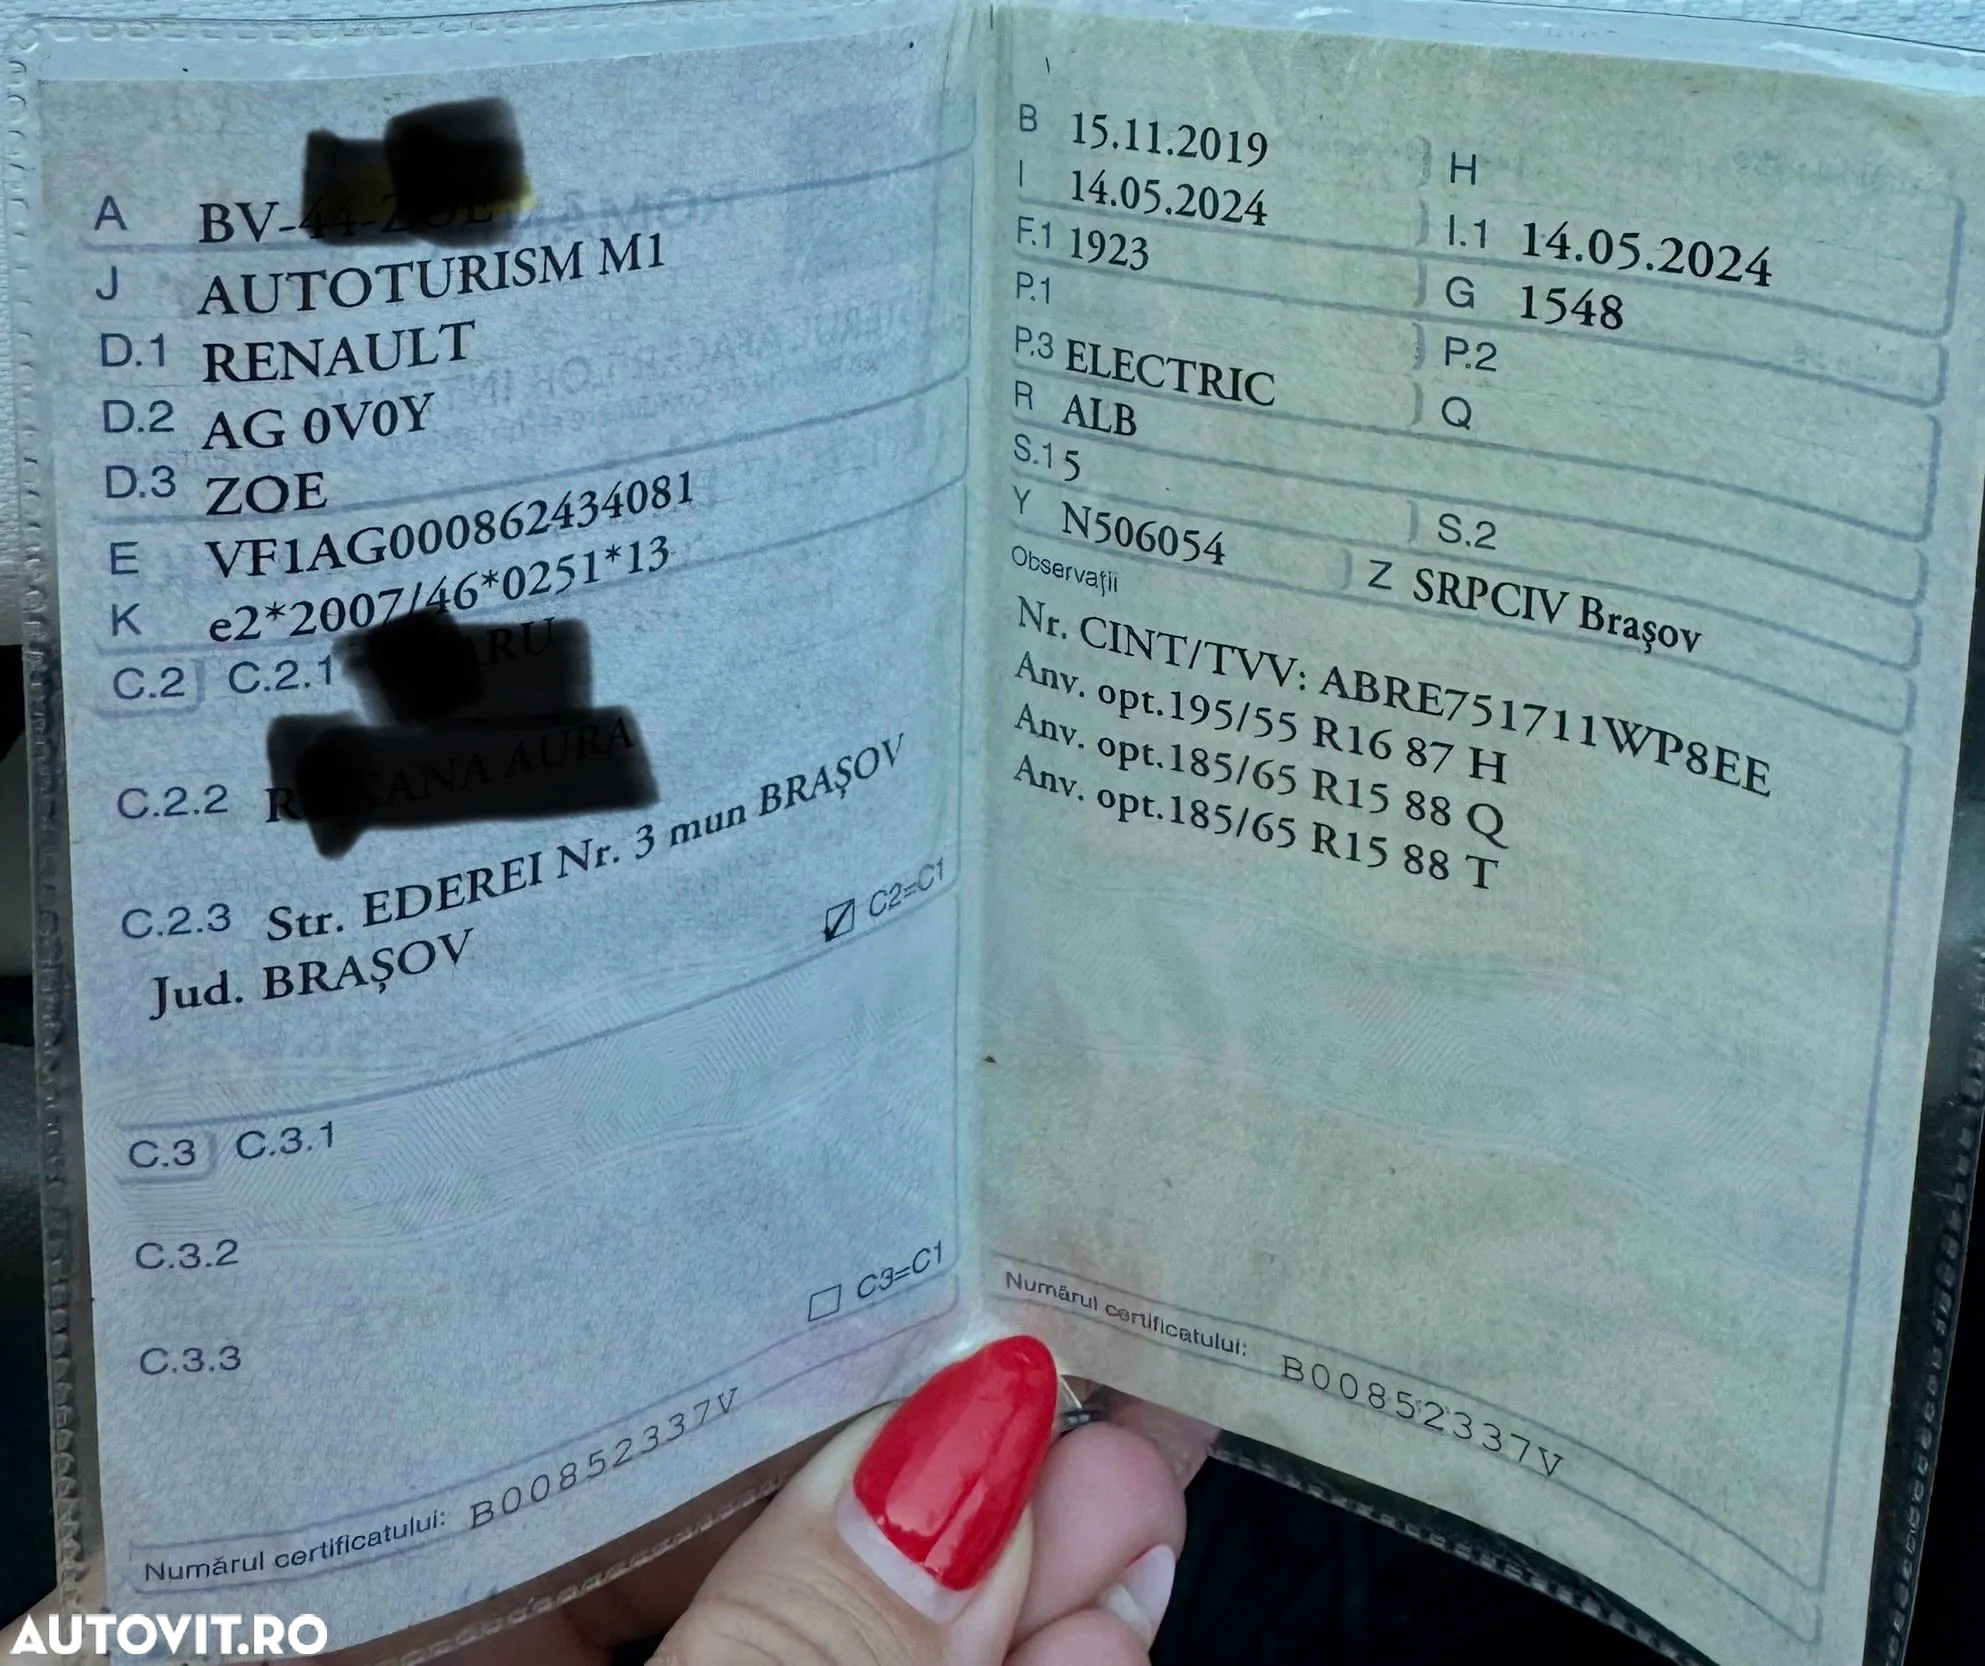 A BV-
J AUTOTURISM M1
D.1 RENAULT
D.2 AG 0V0Y
D.3 ZOE
E VF1AG000862434081
K e2*2007/46*0251*13
C.2 C.2.1
C.2.2
C.2.3 Str. EDEREI Nr. 3 mun BRAŞOV
Jud. BRAŞOV
C2=C1
C.3 C.3.1
C.3.2
C3=C1
C.3.3
Numărul certificatului: B00852337V
B 15.11.2019 H
I 14.05.2024 I.1 14.05.2024
F.1 1923 G 1548
P.1 P.2
P.3 ELECTRIC Q
R ALB
S.1 5 S.2
Y N506054 Z SRPCIV Braşov
Observaţii
Nr. CINT/TVV: ABRE751711WP8EE
Anv. opt.195/55 R16 87 H
Anv. opt.185/65 R15 88 Q
Anv. opt.185/65 R15 88 T
Numărul certificatului: B00852337V
AUTOVIT.RO